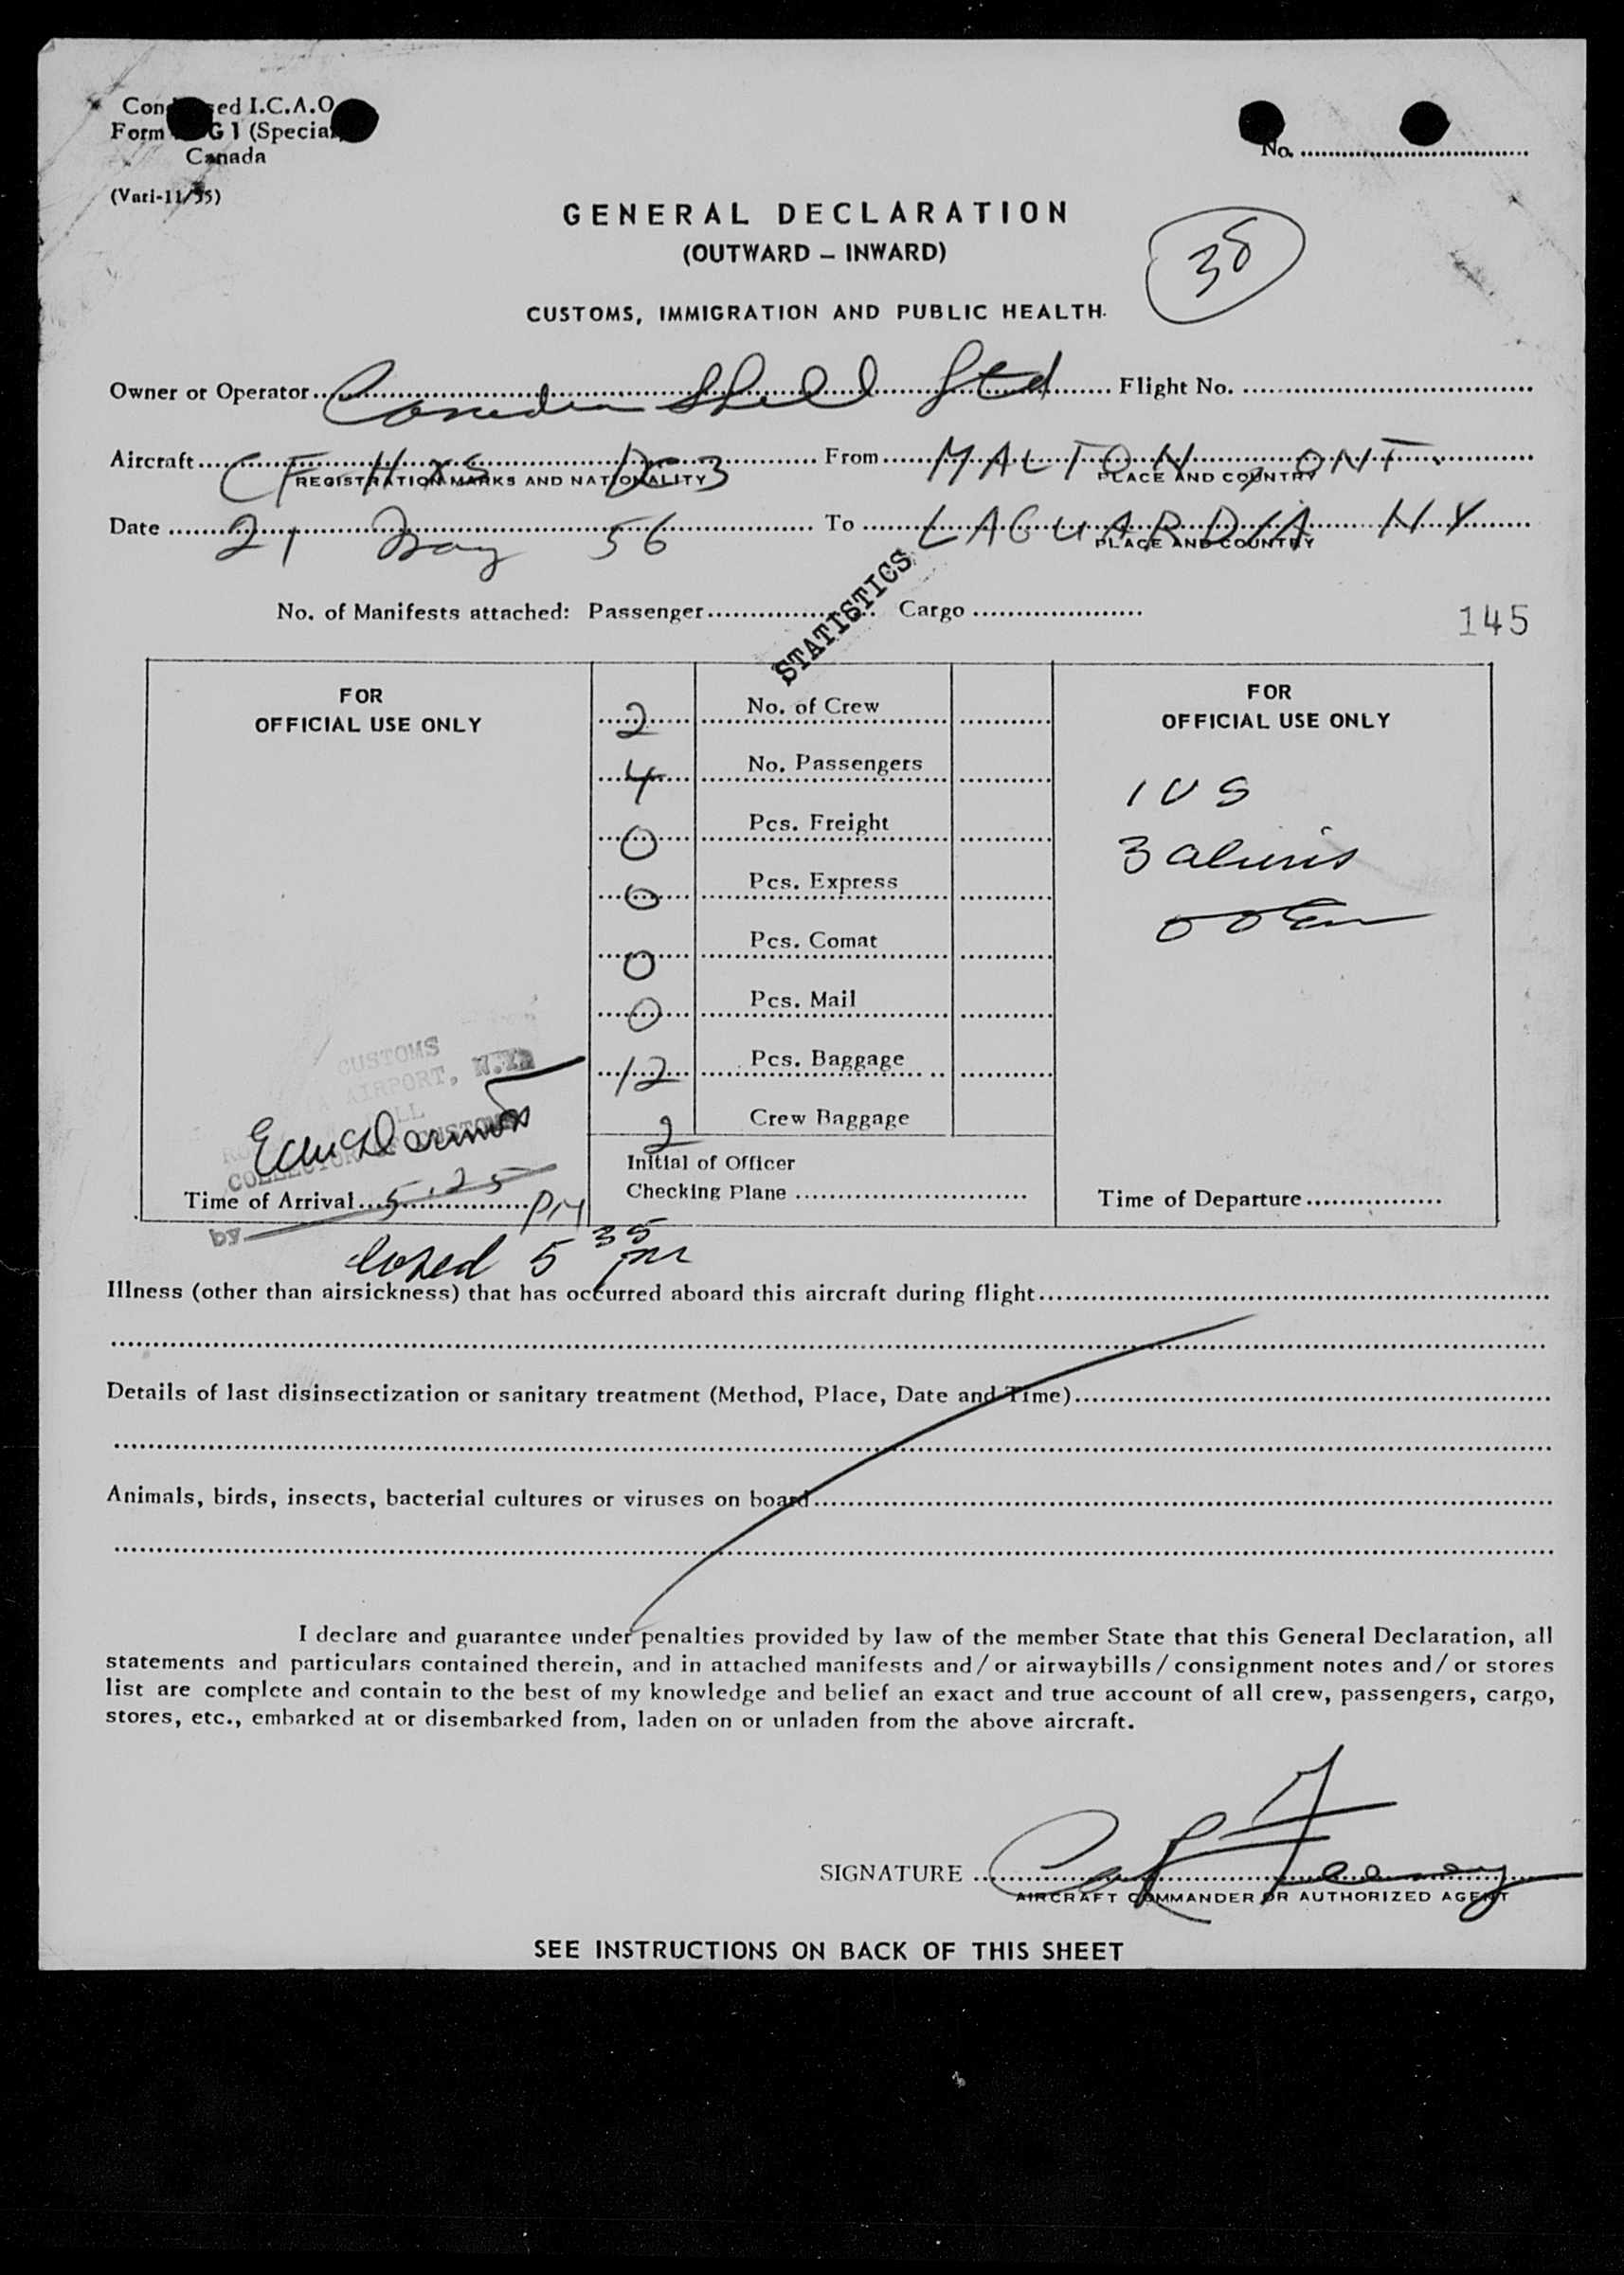 Condensed I.C.A.O.
Form G 1 (Special)
Canada
(Vari-11/55)
No.
GENERAL DECLARATION
(OUTWARD – INWARD)
38
CUSTOMS, IMMIGRATION AND PUBLIC HEALTH.
Owner or Operator Canadian Shell Ltd Flight No.
Aircraft CF HXS DC3 From MALTON, ONT.
REGISTRATION MARKS AND NATIONALITY PLACE AND COUNTRY
Date 21 May 56 To LAGUARDIA NY
PLACE AND COUNTRY
STATISTICS
No. of Manifests attached: Passenger Cargo
145
FOR
OFFICIAL USE ONLY
2 No. of Crew
4 No. Passengers
0 Pcs. Freight
0 Pcs. Express
0 Pcs. Comat
0 Pcs. Mail
12 Pcs. Baggage
2 Crew Baggage
FOR
OFFICIAL USE ONLY
1 US
3 aliens
CUSTOMS
AIRPORT, N.Y.
COLLECTOR OF CUSTOMS
Time of Arrival 5.25 PM
by
Initial of Officer
Checking Plane
Time of Departure
5 35 pm
Illness (other than airsickness) that has occurred aboard this aircraft during flight
Details of last disinsectization or sanitary treatment (Method, Place, Date and Time)
Animals, birds, insects, bacterial cultures or viruses on board
I declare and guarantee under penalties provided by law of the member State that this General Declaration, all
statements and particulars contained therein, and in attached manifests and/or airwaybills/consignment notes and/or stores
list are complete and contain to the best of my knowledge and belief an exact and true account of all crew, passengers, cargo,
stores, etc., embarked at or disembarked from, laden on or unladen from the above aircraft.
SIGNATURE
AIRCRAFT COMMANDER OR AUTHORIZED AGENT
SEE INSTRUCTIONS ON BACK OF THIS SHEET